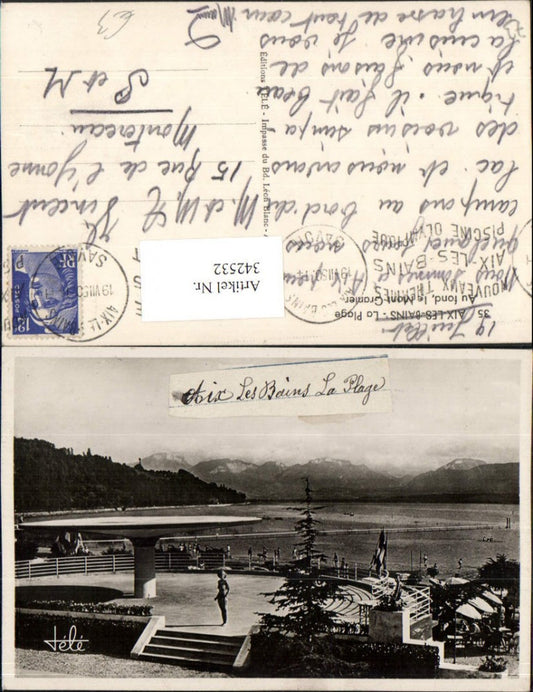 35 AIX-LES-BAINS - La Plage
Au fond, le Mont Granier
19 Juillet
Nous sommes
quelques jours
campons au bord du
lac et nous avons
des voisins sympa
tique. il fait beau
et nous faisons de
la cuisine Je vous
embrasse de tout cœur
Éditions TÉLÉ - Impasse du Bd. Léon Blanc -
NOUVEAUX THERMES
AIX-LES-BAINS
PISCINE OLYMPIQUE
M. et M. Vincent
15 Rue de l'Yonne
Montereau
S et M
RF
12F
POSTES
AIX-LES-BAINS
SAVOIE
Artikel Nr.
342532
63
Aix Les Bains La Plage
Télé